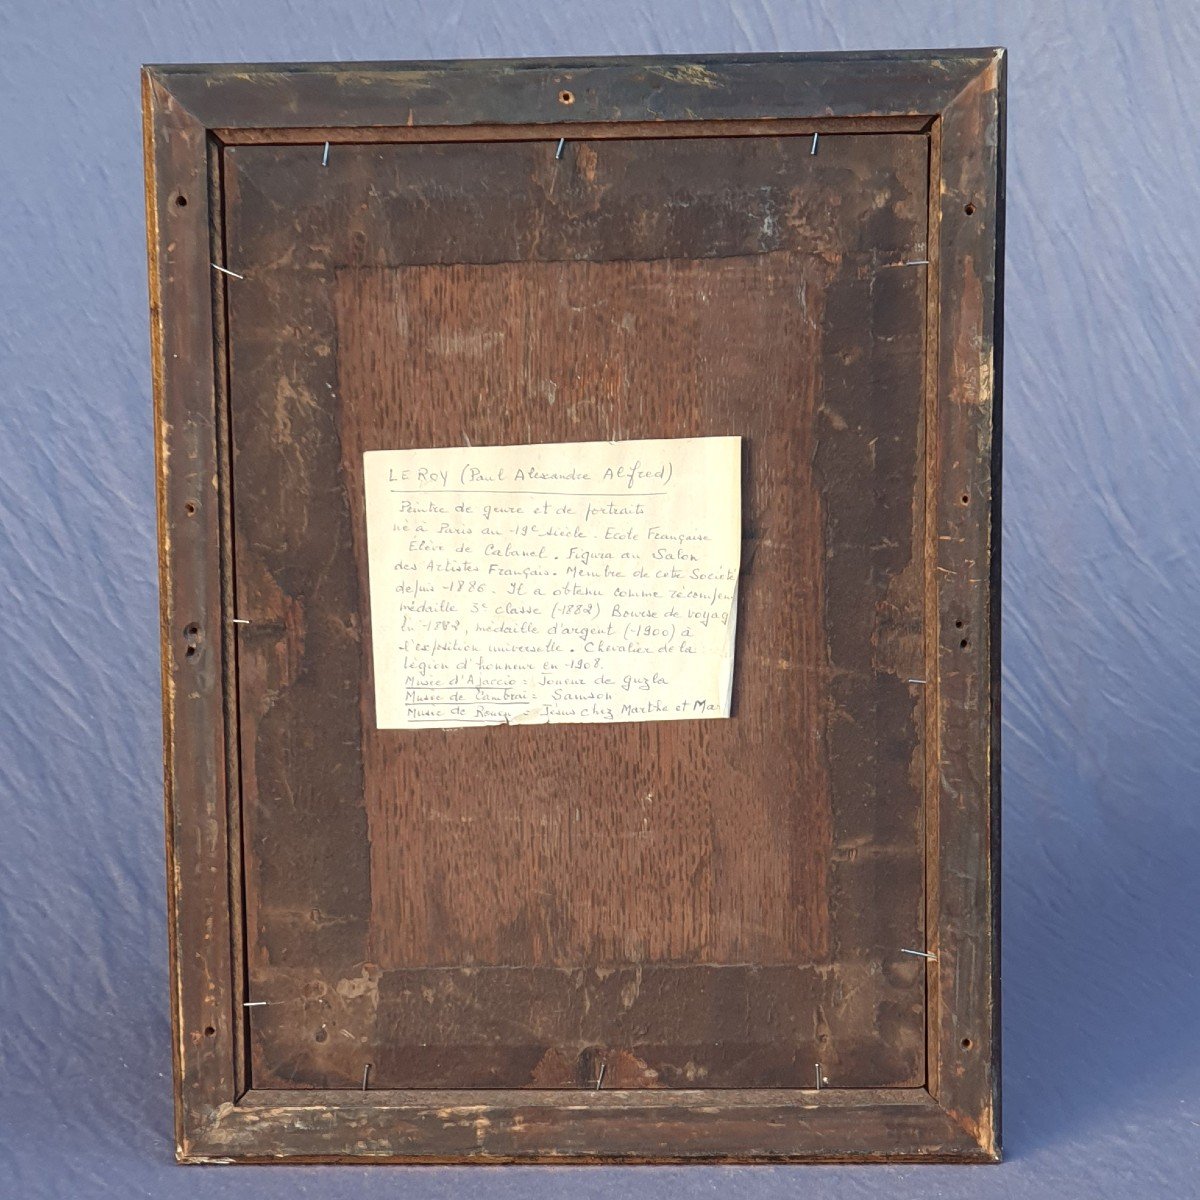 LE ROY (Paul Alexandre Alfred)
Peintre de genre et de portraits
né à Paris au 19e siècle. Ecole Française
Elève de Cabanel. Figura au Salon
des Artistes Français. Membre de cette Société
depuis 1886. Il a obtenu comme récompen
médaille 3e classe (1882) Bourse de voyag
En 1882, médaille d'argent (1900) à
l'exposition universelle. Chevalier de la
légion d'honneur en 1908.
Musée d'Ajaccio = Joueur de guzla
Musée de Cambrai = Samson
Musée de Rouen = Jésus chez Marthe et Mar